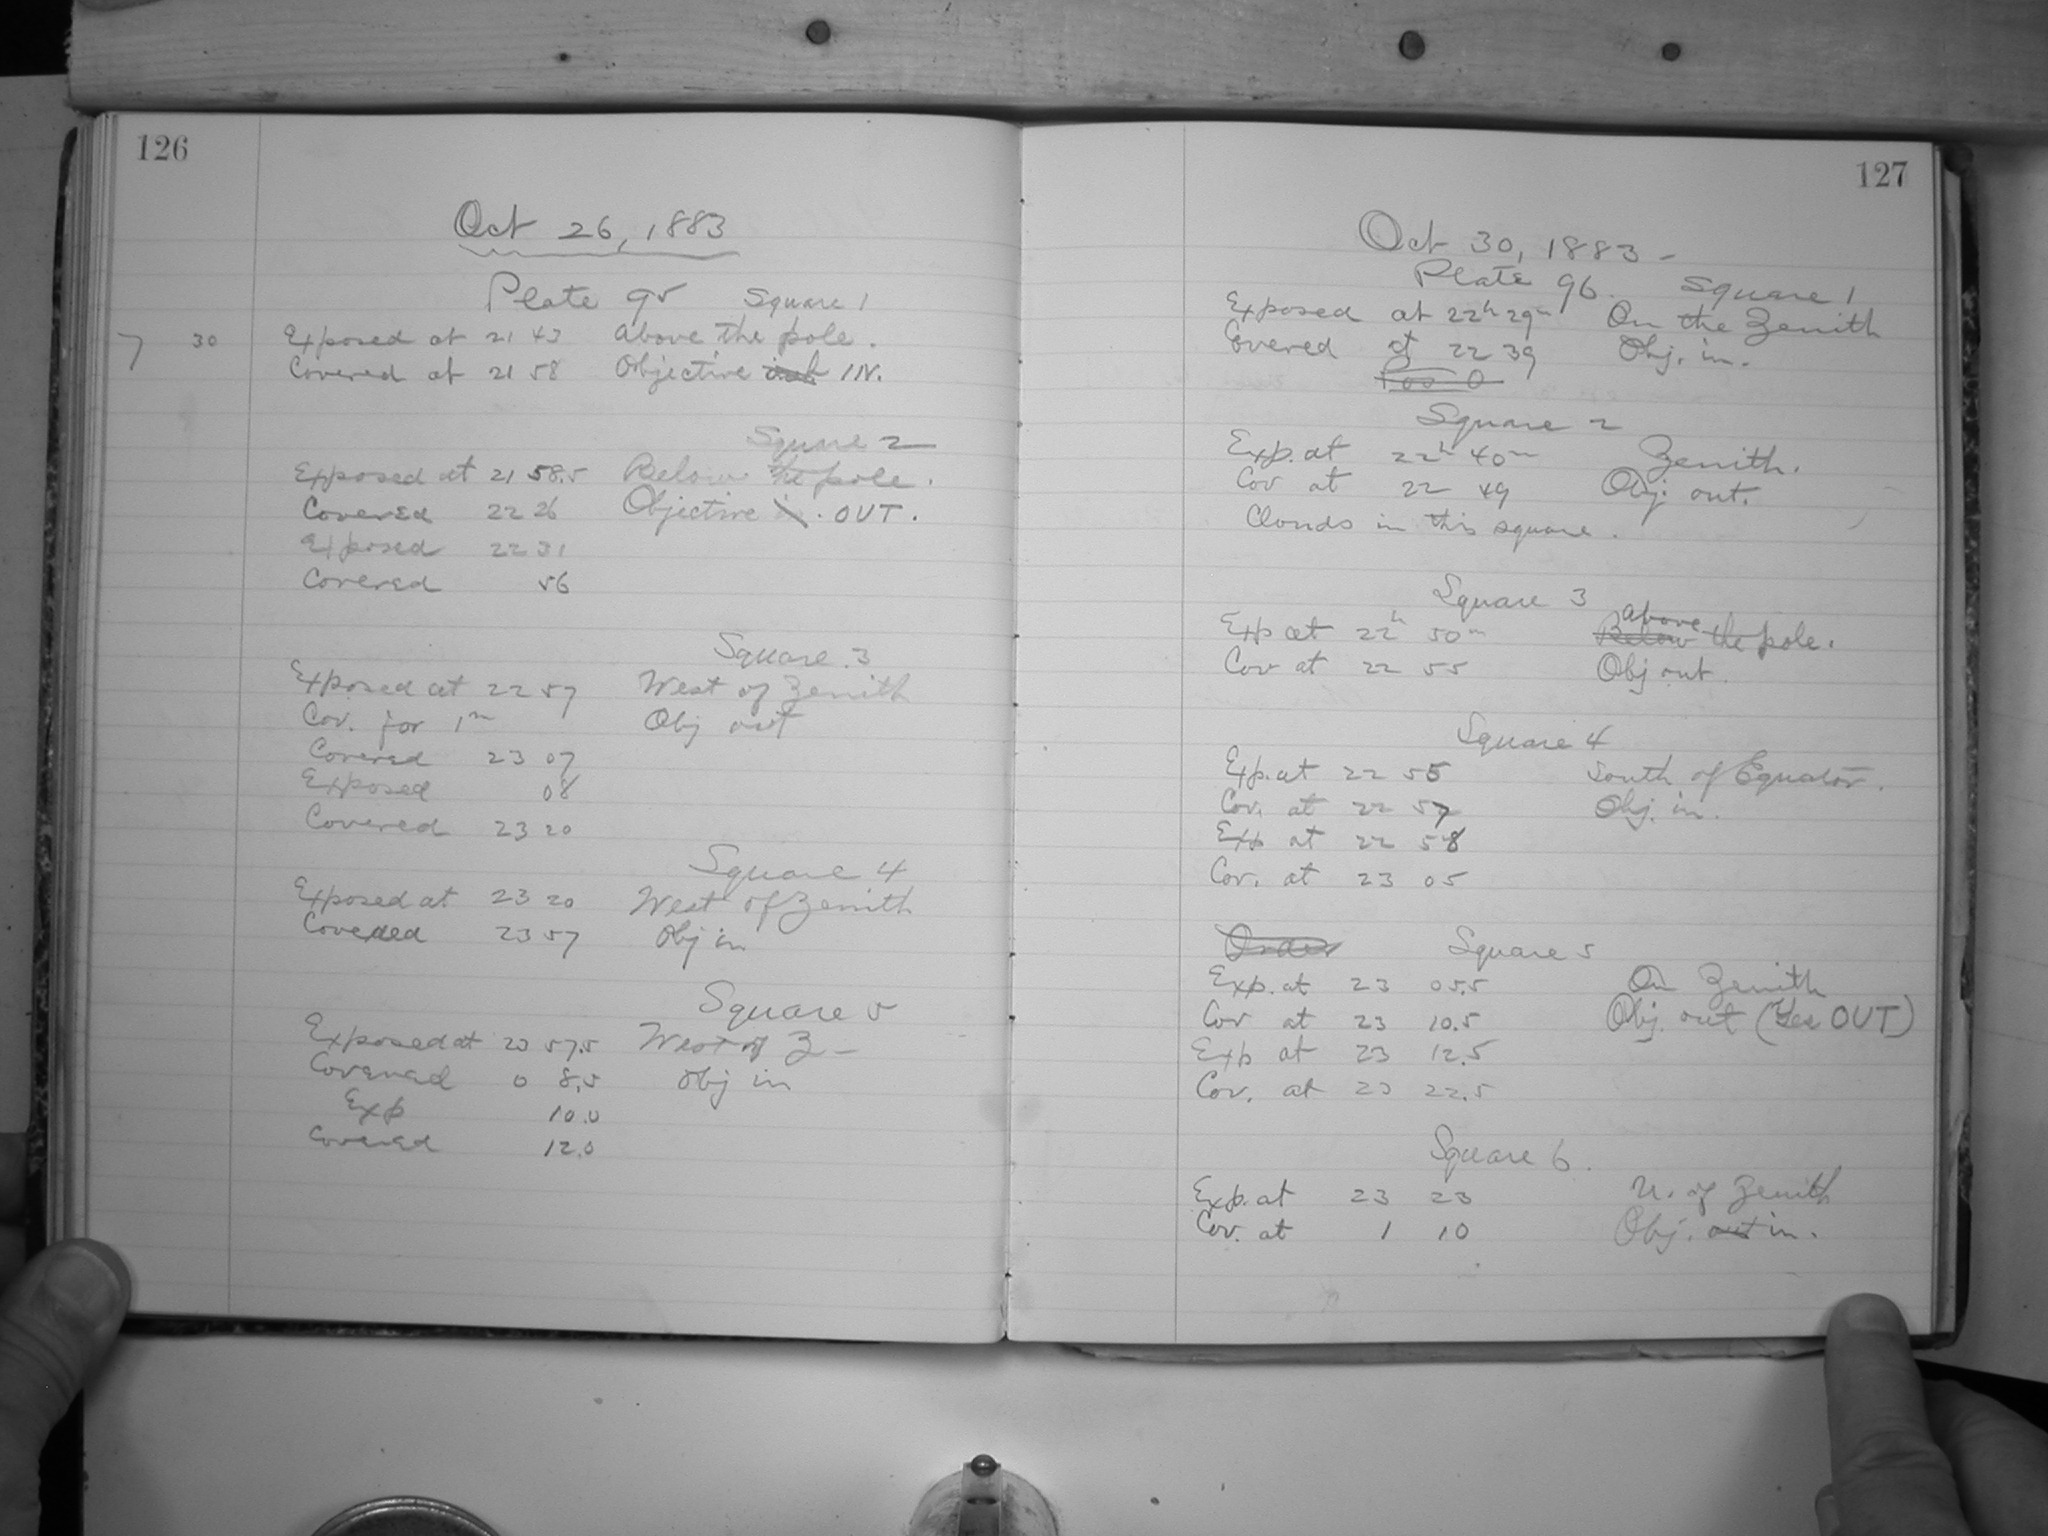 126
Oct 26, 1883
Plate 95 Square 1
7 30 Exposed at 21 43 Above the pole.
Covered at 21 58 Objective out IN.
Square 2
Exposed at 21 58.5 Below the pole.
Covered 22 26 Objective in. OUT.
Exposed 22 31
Covered 56
Square 3
Exposed at 22 57 West of Zenith
Cov. for 1m Obj out
Covered 23 07
Exposed 08
Covered 23 20
Square 4
Exposed at 23 20 West of Zenith
Covered 23 57 Obj in
Square 5
Exposed at 23 57.5 West of Z—
Covered 0 8.5 Obj in
Exp 10.0
Covered 12.0
127
Oct 30, 1883 -
Plate 96. Square 1
Exposed at 22h 29m On the Zenith
Covered at 22 39 Obj. in.
Pos 0
Square 2
Exp. at 22h 40m Zenith.
Cov at 22 49 Obj. out.
Clouds in this square.
Square 3
Exp at 22h 50m Below above the pole.
Cov at 22 55 Obj out.
Square 4
Exp. at 22 55 South of Equator.
Cov. at 22 57 Obj. in.
Exp at 22 58
Cov. at 23 05
Order Square 5
Exp. at 23 05.5 On Zenith
Cov at 23 10.5 Obj. out (Yes OUT)
Exp at 23 12.5
Cov. at 23 22.5
Square 6.
Exp. at 23 23 N. of Zenith
Cov. at 1 10 Obj. out in.